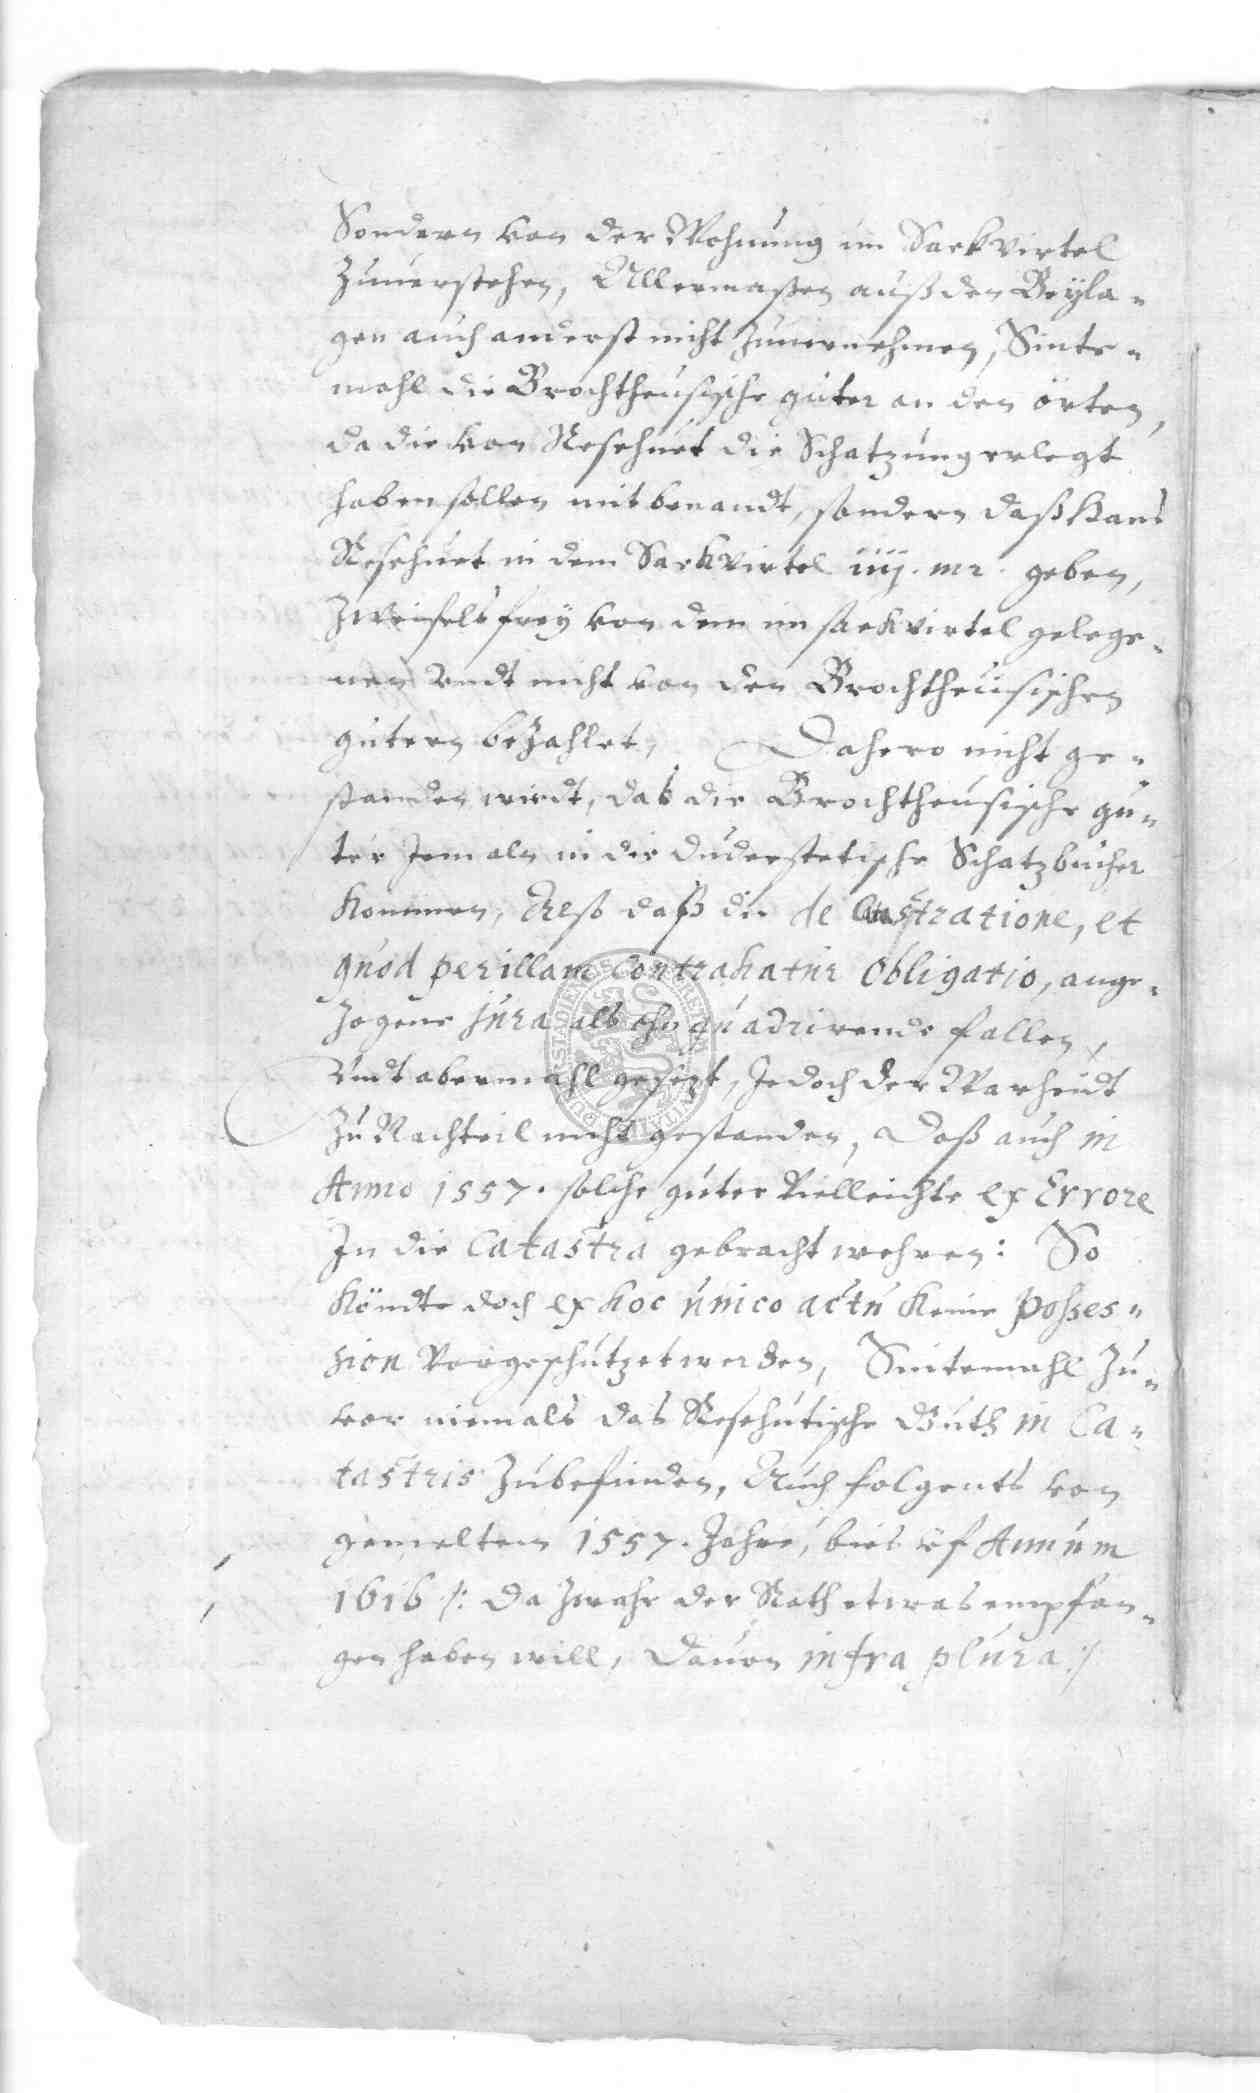 Sondern von der Wohnung im Sackvirtel
Zuuerstehen, Allermaßen auß den Beÿla-
gen auch anderst nicht Zuuernehmen, Sinte-
mahl die Brochtheusische güter an den örten,
da die von Resehuet die Schatzung erlegt
haben sollen nit benandt, sondern daß Hans
Resehuet in dem Sackvirtel iiij. mr. geben,
Zweifelsfreÿ von dem im sackvirtel gelege-
nen Undt nicht von den Brochtheüsischen
gütern beZahlet, Dahero nicht ge-
standen wirdt, das die Brochtheusische gü-
ter Jemaln in die duderstetische Schatzbücher
Kommen, Also daß die de Catastratione, et
quod per illam Contrahatur Obligatio, ange-
Zogene Jura als ohn quadrirende fallen,
Undt abermahl gesezt, Jedoch der Warheidt
Zu Nachteil nicht gestanden, Daß auch in
Anno 1557. solche güter Vielleichte ex Errore
In die Catastra gebracht wehren: So
Köndte doch ex hoc unico actu Keine Posses-
sion Vorgeschützet werden, Sintemahl Zu-
vor niemals das Resehutische Guth in Ca-
tastris Zubefinden, Auch folgents von
gemeltem 1557. Jahre, bies vf Annum
1616 /: Da Zwahr der Rath etwas empfan-
gen haben will, Dauon infra plura :/